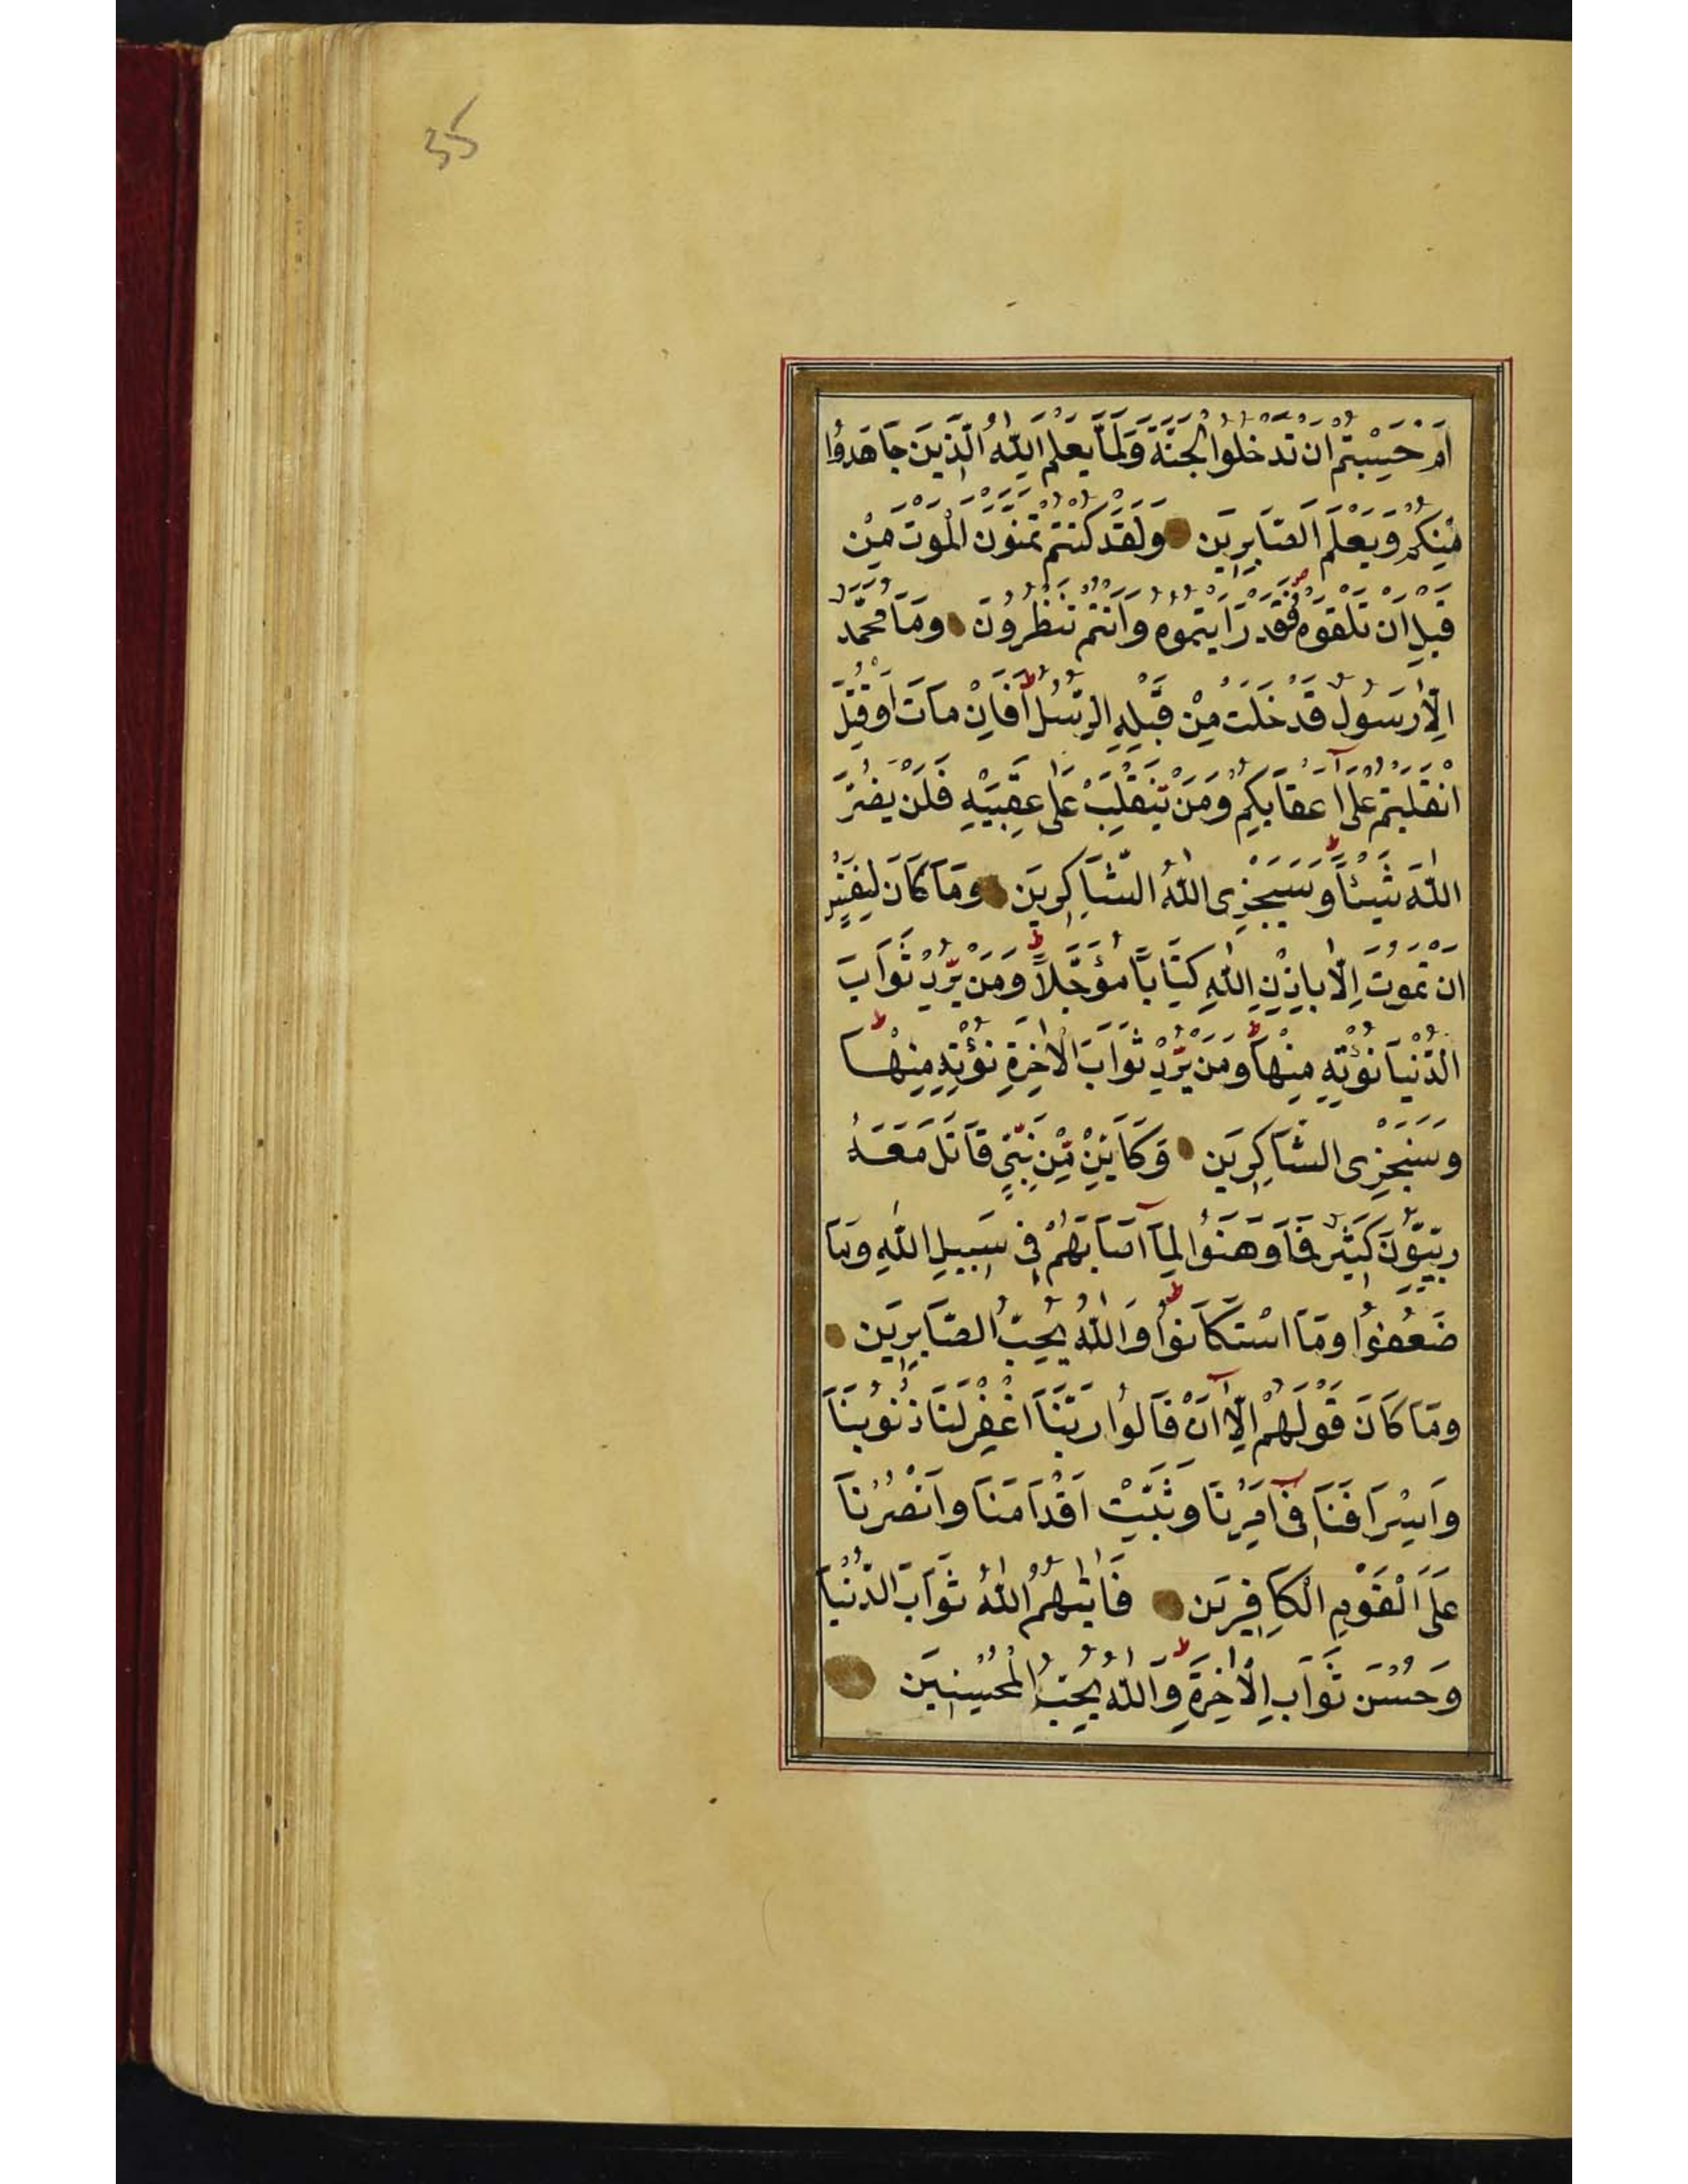 35
اَمْ حَسِبْتُمْ اَنْ تَدْخُلُوا الْجَنَّةَ وَلَمَّا يَعْلَمِ اللّٰهُ الَّذِينَ جَاهَدُوا
مِنْكُمْ وَيَعْلَمَ الصَّابِرِينَ وَلَقَدْ كُنْتُمْ تَمَنَّوْنَ الْمَوْتَ مِنْ
قَبْلِ اَنْ تَلْقَوْهُ ص فَقَدْ رَاَيْتُمُوهُ وَاَنْتُمْ تَنْظُرُونَ وَمَا مُحَمَّدٌ
اِلَّا رَسُولٌ قَدْ خَلَتْ مِنْ قَبْلِهِ الرُّسُلُ ط اَفَاِنْ مَاتَ اَوْ قُتِلَ
انْقَلَبْتُمْ عَلٰٓى اَعْقَابِكُمْ وَمَنْ يَنْقَلِبْ عَلٰى عَقِبَيْهِ فَلَنْ يَضُرَّ
اللّٰهَ شَيْئًا ط وَسَيَجْزِى اللّٰهُ الشَّاكِرِينَ وَمَا كَانَ لِنَفْسٍ
اَنْ تَمُوتَ اِلَّا بِاِذْنِ اللّٰهِ كِتَابًا مُؤَجَّلًا ط وَمَنْ يُرِدْ ثَوَابَ
الدُّنْيَا نُؤْتِهِ مِنْهَا ط وَمَنْ يُرِدْ ثَوَابَ الْاٰخِرَةِ نُؤْتِهِ مِنْهَا ط
وَسَنَجْزِى الشَّاكِرِينَ وَكَاَيِّنْ مِّنْ نَبِيٍّ قَاتَلَ مَعَهُ
رِبِّيُّونَ كَثِيرٌ فَمَا وَهَنُوا لِمَآ اَصَابَهُمْ فِى سَبِيلِ اللّٰهِ وَمَا
ضَعُفُوا وَمَا اسْتَكَانُوا ط وَاللّٰهُ يُحِبُّ الصَّابِرِينَ
وَمَا كَانَ قَوْلَهُمْ اِلَّآ اَنْ قَالُوا رَبَّنَا اغْفِرْ لَنَا ذُنُوبَنَا
وَاِسْرَافَنَا فِىٓ اَمْرِنَا وَثَبِّتْ اَقْدَامَنَا وَانْصُرْنَا
عَلَى الْقَوْمِ الْكَافِرِينَ فَاٰتٰىهُمُ اللّٰهُ ثَوَابَ الدُّنْيَا
وَحُسْنَ ثَوَابِ الْاٰخِرَةِ ط وَاللّٰهُ يُحِبُّ الْمُحْسِنِينَ